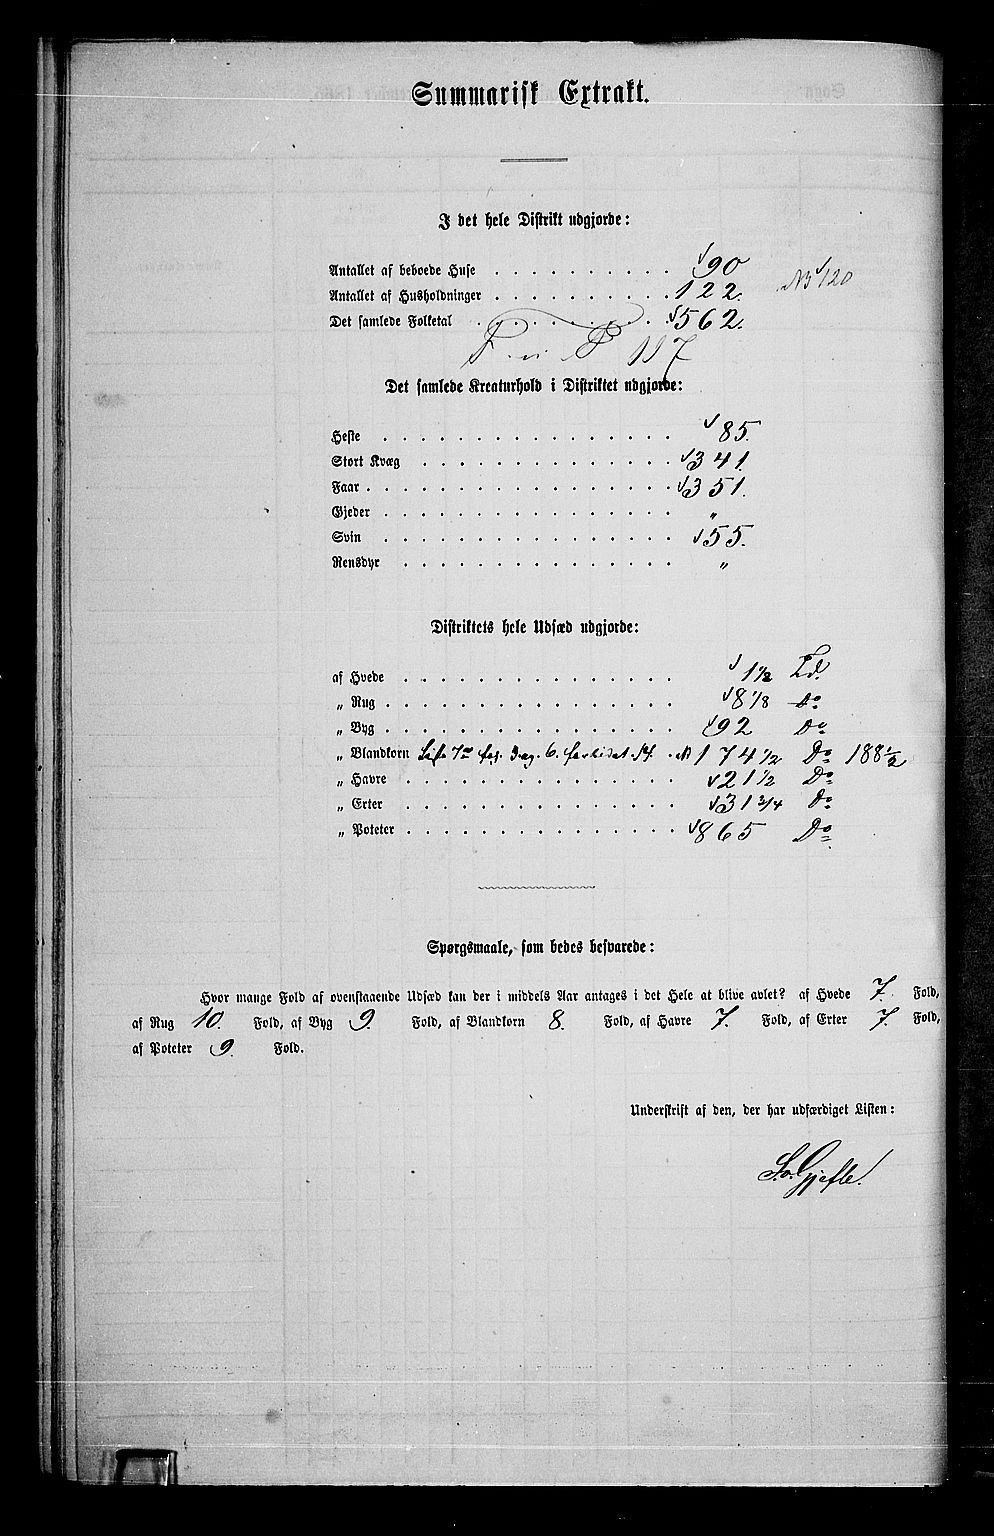 Summarisk Extrakt.
I det hele Distrikt udgjorde:
Antallet af beboede Huse . . . . . . . . . . 90
Antallet af Husholdninger . . . . . . . . . . 122. NB 120
Det samlede Folketal . . . . . . . . . . 562.
117
Det samlede Kreaturhold i Distriktet udgjorde:
Heste . . . . . . . . . . 85.
Stort Kvæg . . . . . . . . . . 341.
Faar . . . . . . . . . . 351.
Gjeder . . . . . . . . . . "
Svin . . . . . . . . . . 55.
Rensdyr . . . . . . . . . . "
Distriktets hele Udsæd udgjorde:
af Hvede . . . . . . . . . . 1 1/2 Td.
„ Rug . . . . . . . . . . 8 1/8 Do
„ Byg . . . . . . . . . . 92 Do
„ Blandkorn 174 1/2 Do 188 1/2
„ Havre . . . . . . . . . . 21 1/2 Do
„ Erter . . . . . . . . . . 31 3/4 Do
„ Poteter . . . . . . . . . . 865 Do
Spørgsmaale, som bedes besvarede:
Hvor mange Fold af ovenstaaende Udsæd kan der i middels Aar antages i det Hele at blive avlet? af Hvede 7. Fold,
af Rug 10. Fold, af Byg 9. Fold, af Blandkorn 8. Fold, af Havre 7. Fold, af Erter 7. Fold,
af Poteter 9. Fold.
Underskrift af den, der har udfærdiget Listen: